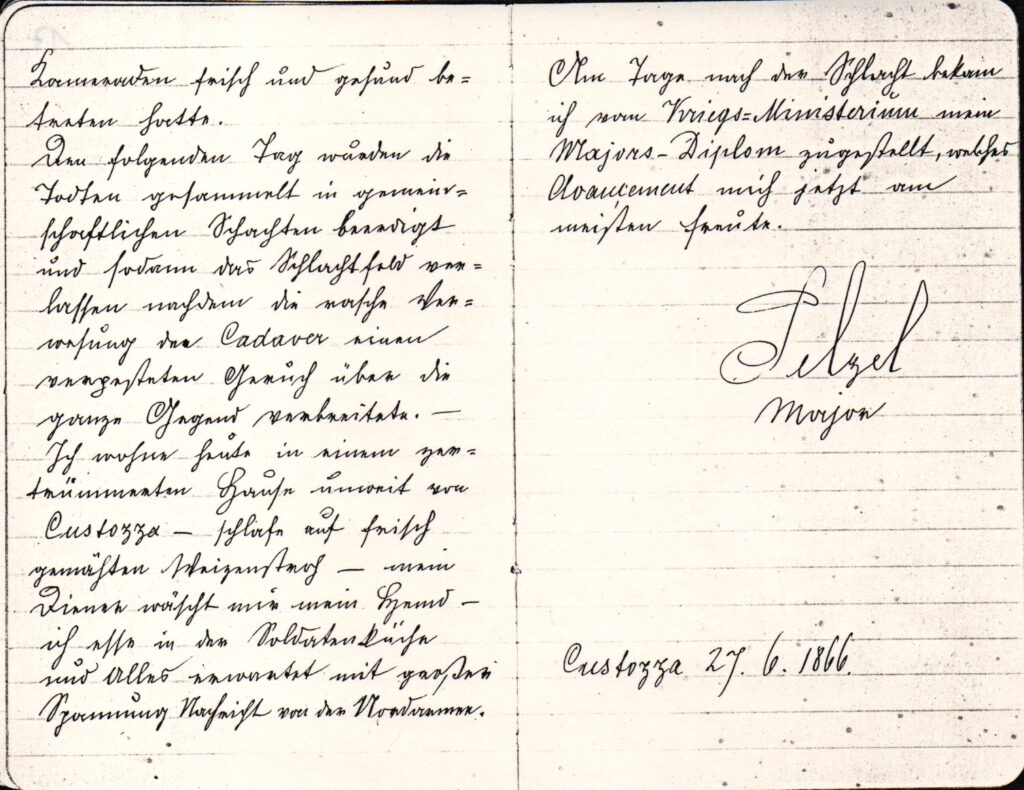 Kameraden frisch und gesund be=
treten hatte.
Den folgenden Tag wurden die
Todten gesammelt in gemein=
schaftlichen Schachten beerdigt
und sodann das Schlachtfeld ver=
lassen nachdem die rasche Ver=
wesung der Cadaver einen
verpesteten Geruch über die
ganze Gegend verbreitete. —
Ich wohne heute in einem zer=
trümmerten Hause unweit von
Custozza — schlafe auf frisch
gemähten Weizenstroh — mein
Diener wäscht mir mein Hemd —
ich esse in der Soldatenküche
und Alles erwartet mit großer
Spannung Nachricht von der Nordarmee.
Am Tage nach der Schlacht bekam
ich vom Kriegs=Ministerium mein
Majors-Diplom zugestellt, welches
Avancement mich jetzt am
meisten freute.
Pelzel
Major
Custozza 27. 6. 1866.